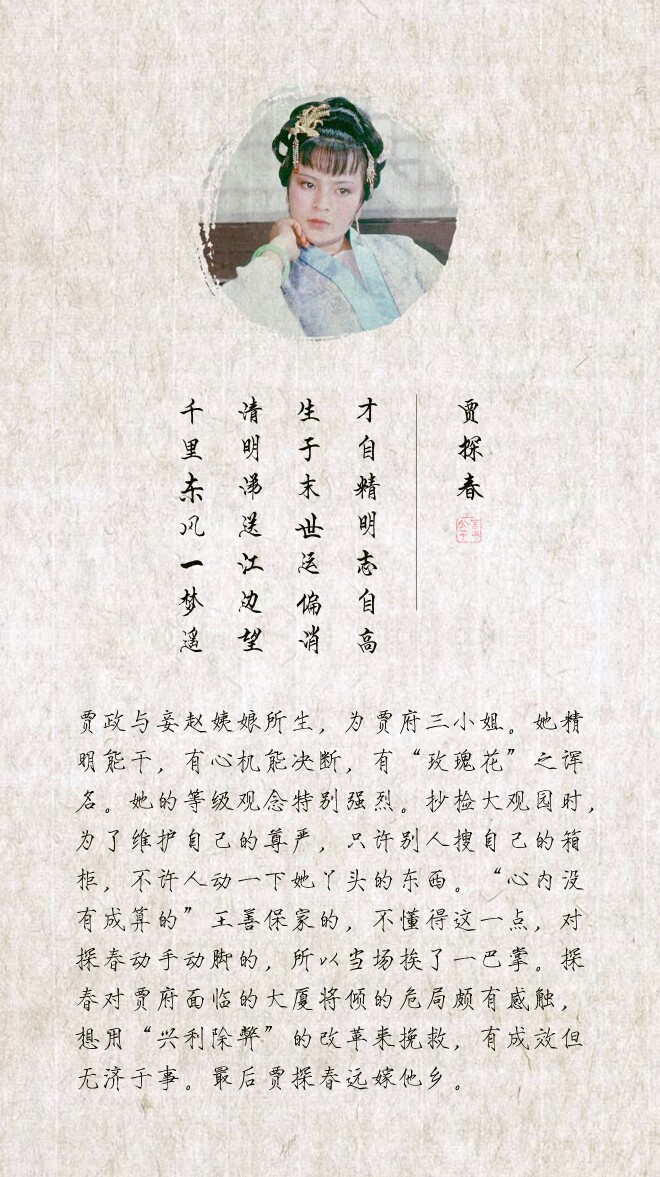 贾探春
才自精明志自高
生于末世运偏消
清明涕送江边望
千里东风一梦遥
贾政与妾赵姨娘所生，为贾府三小姐。她精
明能干，有心机能决断，有“玫瑰花”之诨
名。她的等级观念特别强烈。抄检大观园时，
为了维护自己的尊严，只许别人搜自己的箱
柜，不许人动一下她丫头的东西。“心内没
有成算的”王善保家的，不懂得这一点，对
探春动手动脚的，所以当场挨了一巴掌。探
春对贾府面临的大厦将倾的危局颇有感触，
想用“兴利除弊”的改革来挽救，有成效但
无济于事。最后贾探春远嫁他乡。